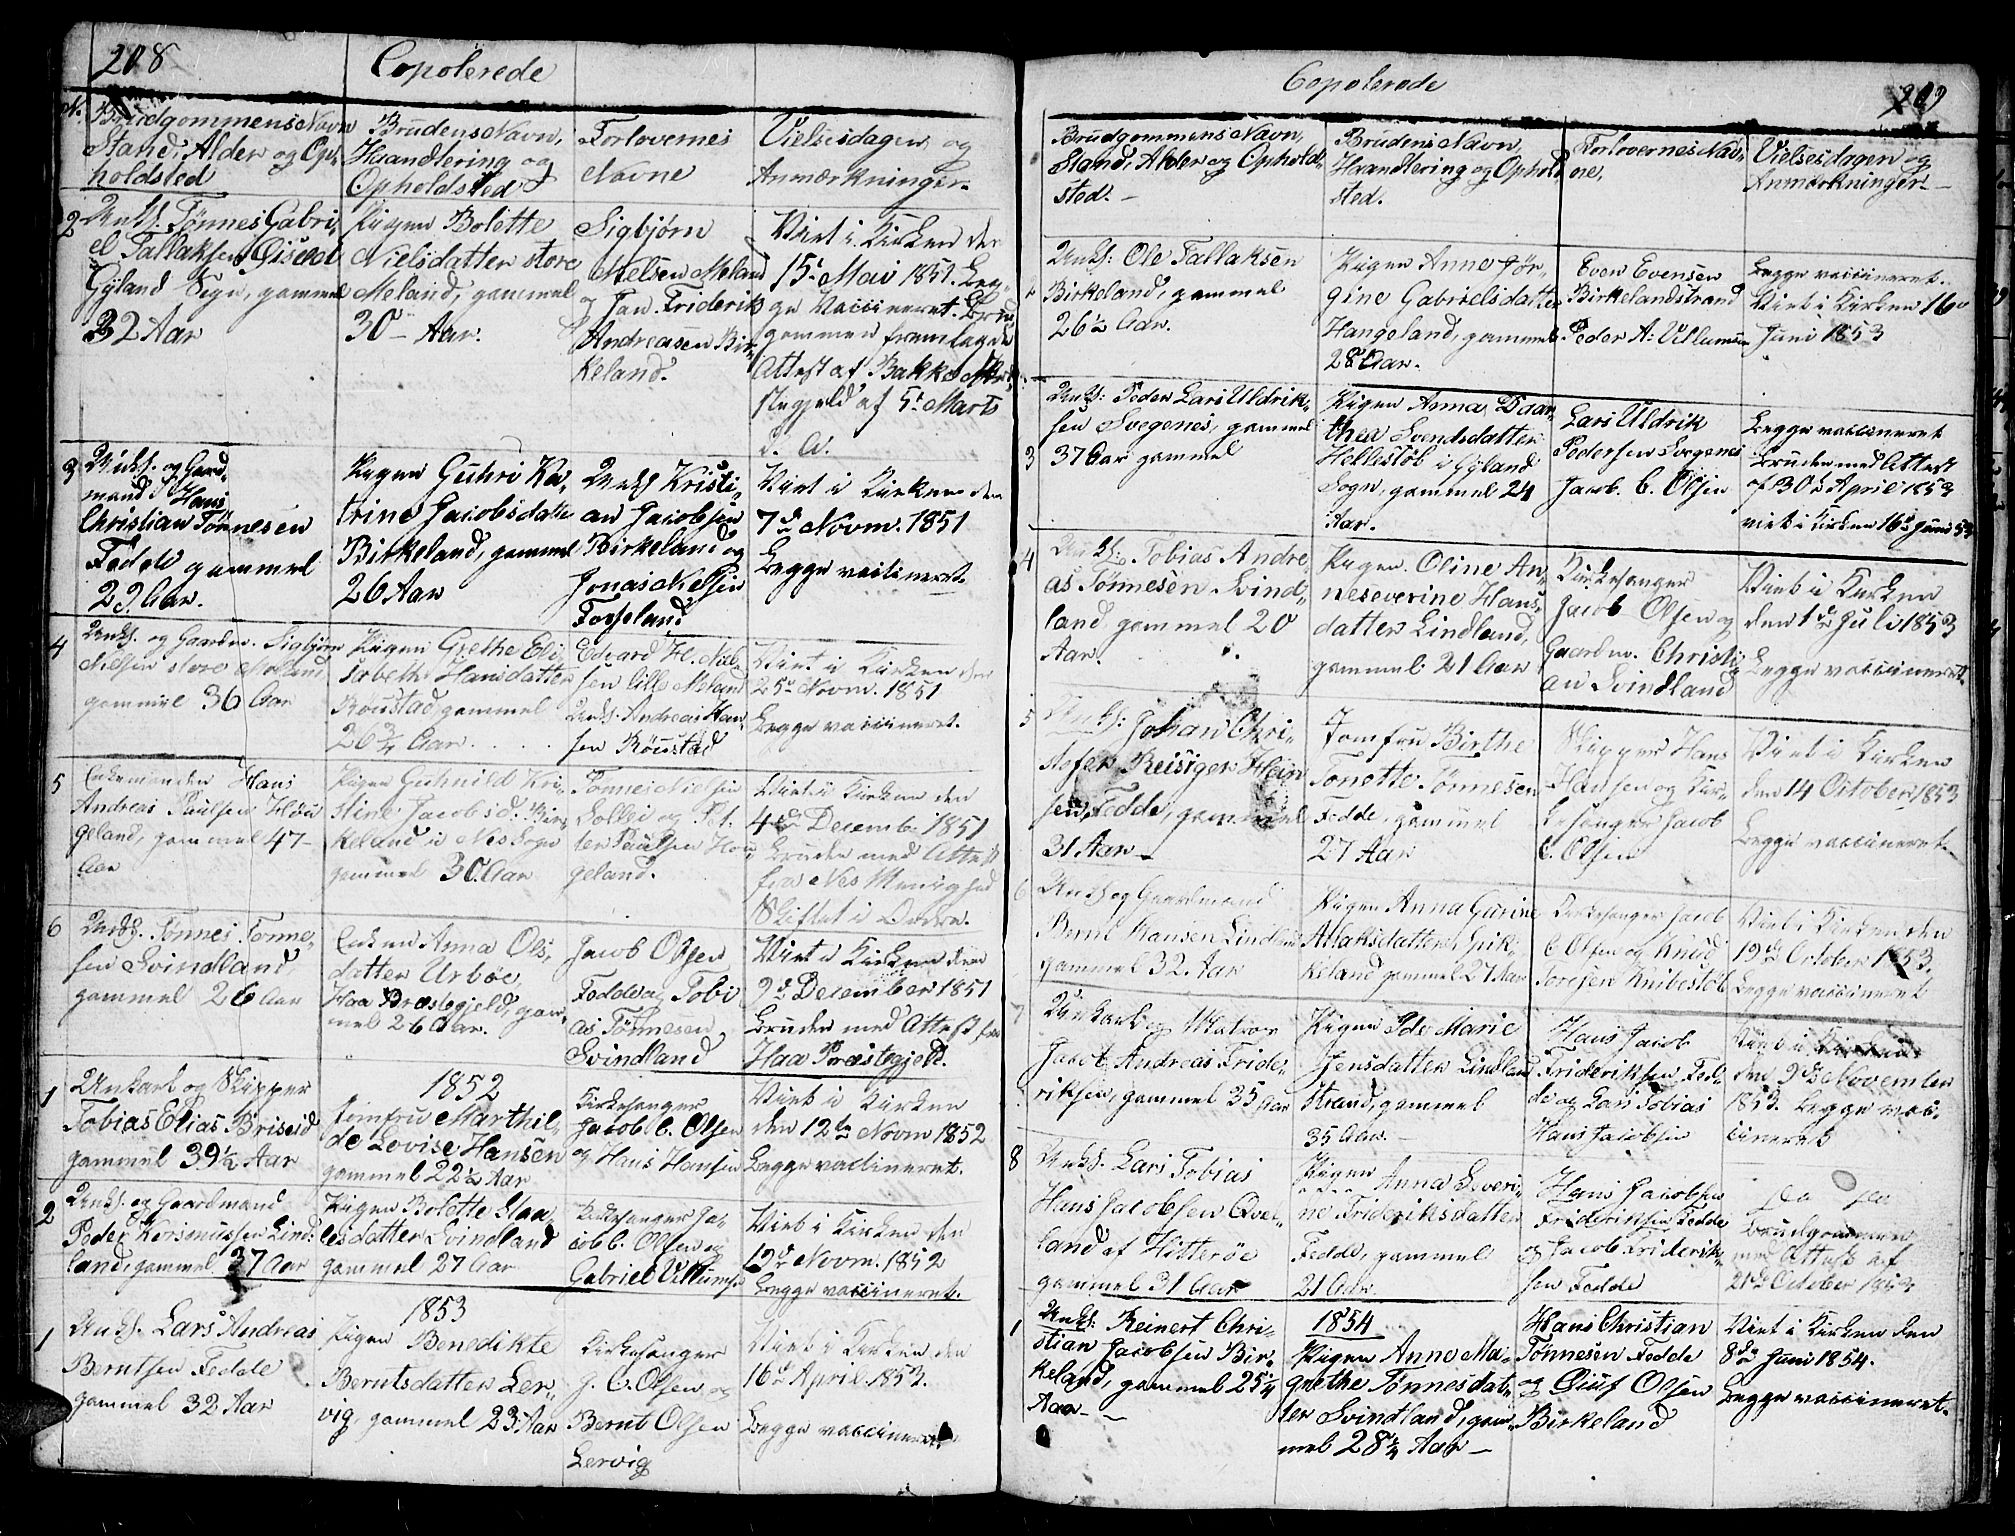 208
Copolerede
N.
Brudgommens Navn
Stand, Alder og Op-
holdsted
Brudens Navn,
Haandtering og
Opholdsted
Forlovernes
Navne
Vielsesdagen og
Anmærkninger
2
Unks. Tønnes Gabri-
el Tallaksen
Gyland Sogn, gammel
32 Aar
Pigen Bolette
Nielsdatter store
Meland, gammel
30 Aar.
Sigbjørn
Nielsen Meland
og Jan Friderik
Andreasen Bir-
keland.
Viet i Kirken den
15de Mai 1851. Beg-
ge Vaccineret. Brud-
gommen fremlagde
Attest af Bakke Præ-
stegjeld af 5te Marts
d. A.
3
Unks. og Gaard-
mand Hans
Christian Tønnesen
Fedde gammel
29 Aar.
Pigen Guhri Ka-
trine Jacobsdatter
Birkeland, gammel
26 Aar
Unks Kristi-
an Jacobsen
Birkeland og
Jonas Nilsen
Fosseland
Viet i Kirken den
7de Novm. 1851
Begge vaccineret.
4
Unks. og Gaardm. Sigbjørn
Nielsen store Meland
gammel 36 Aar
Pigen Grethe Eli-
sabeth Hansdatter
Røustad gammel
26 3/4 Aar
Edvard H. Niel-
sen lille Meland
Unks. Andreas Han-
sen Røustad
Viet i Kirken den
25de Novm. 1851
Begge vaccineret.
5
Enkemanden Hans
Andreas Paulsen Hou-
geland, gammel 47
Aar
Pigen Guhnild Kri-
stine Jacobsd. Bir-
keland i Nes Sogn
gammel 30 Aar
Tønnes Nielsen
Lollei og Pet-
ter Paulsen Hou-
geland.
Viet i Kirken den
4de Decemb. 1851
Bruden med Attest
fra Nes Menighed
Skiftet i Orden.
6
Unks. Tønnes Tønne-
sen Svindland
gammel 26 Aar
Enken Anna Ols-
datter Urbøe,
Haa Præstegjeld, gam-
mel 26 Aar.
Jacob Olsen
Fedde og Tobi
as Tønnesen
Svindland
Viet i Kirken den
9de December 1851
Bruden med Attest fra
Haa Præstegjeld.
1852
1
Unkarl og Skipper
Tobias Elias Briseid
gammel 39 1/2 Aar
Jomfru Marthil-
de Lovise Hansen
gammel 22 1/2 Aar
Kirkesanger
Jacob C. Olsen
og Hans Hansen
Viet i Kirken
den 12te Novm 1852
Begge vaccineret.
2
Unks. og Gaardmand
Peder Korsmussen Lind-
land, gammel 37 Aar
Pigen Bolette Staa-
lesdatter Svindland
gammel 27 Aar
Kirkesanger Ja-
cob C. Olsen og
Gabriel Villumsen
Viet i Kirken den
12te Novm. 1852
Begge vaccineret.
1853
1
Unks. Lars Andreas
Berntsen Fedde
gammel 32 Aar
Pigen Benedikte
Berntsdatter Ler-
vig, gammel 23 Aar
Kirkesanger
J. C. Olsen og
Bernt Olsen
Lervig
Viet i Kirken den
16de April 1853.
Begge vaccineret
209
Copolerede
Brudgommens Navn,
Stand, Alder og Ophold-
sted.
Brudens Navn,
Haandtering og Ophold-
sted.
Forlovernes Nav-
ne,
Vielsesdagen og
Anmærkninger
Unks: Ole Tallaksen
Birkeland, gammel
26 1/2 Aar.
Pigen Anne Jør-
gine Gabrielsdatter
Hangeland, gammel
28 Aar.
Even Evensen
Birkelandstrand
Peder A: Villumsen
Begge vaccineret.
Viet i Kirken 16de
Juni 1853
3
Unks: Peder Lars Uldrik-
sen Svegenes, gammel
37 Aar gammel
Pigen Anna Daar-
thea Svendsdatter
Hellestøb i Gyland
Sogn, gammel 24
Aar.
Lars Uldrik
Pedersen Svegenes
Jacob. C. Olsen
Begge vaccineret
Bruden med Attest
af 30te April 1853
viet i Kirken 16de Juni 53
4
Unks: Tobias Andre-
as Tønnesen Svind-
land gammel 20
Aar.
Pigen Oline An-
neseverine Hans-
datter Lindland,
gammel 21 Aar
Kirkesanger
Jacob Olsen og
Gaardm. Christi-
an Svindland
Viet i Kirken
den 1de Juli 1853
Begge vaccineret.
5
Unks: Johan Chri-
stofer Reisiger Hein
sen, Fedde, gammel
31 Aar
Jomfru Birthe
Tonette Tønnesen
Fedde, gammel
27 Aar
Skipper Hans
Hansen og Kir-
kesanger Jacob
C. Olsen
Viet i Kirken
den 14 October 1853
Begge vaccineret.
6
Unks og Gaardmand
Bernt Hansen Lindland
gammel 32 Aar
Pigen Anna Gurine
Aslaksdatter Epik-
keland gammel 27 Aar
Kirkesanger Jacob
C Olsen og Knud
Torgsen Knibestøl
Viet i Kirken den
19de October 1853.
Begge vaccineret
7
Unkarl og Matros
Jacob Andreas Fride-
riksen, gammel 35 Aar
Pigen Ide Marie
Jensdatter Lindland
Strand, gammel
35 Aar.
Hans Jacob
Frideriksen Fed-
de og Lars Tobias
Hans Jacobsen
Viet i Kirken
den 9de November
1853. Begge vac-
cineret
8
Unks. Lars Tobias
Hans Jacobsen Qvel-
land af Hitterøe
gammel 31 Aar
Pigen
Anna Severi-
ne Frideriksdatter
Fedde, gammel
21 Aar.
Hans Jacobsen
Frideriksen Fedde
og Jacob Friderik-
sen Fedde
Brudgommen
med Attest af
21de October 1853
1854
1
Unks: Reinert Chri-
stian Jacobsen Bir-
keland, gammel 25 1/4
Aar
Pigen Anne Ma-
grethe Tønnesdat-
ter Svindland, gam-
mel 28 1/4 Aar
Hans Christian
Tønnesen Fedde
og Oluf Olsen
Birkeland
Viet i Kirken den
8de Juni 1854.
Begge vaccineret.